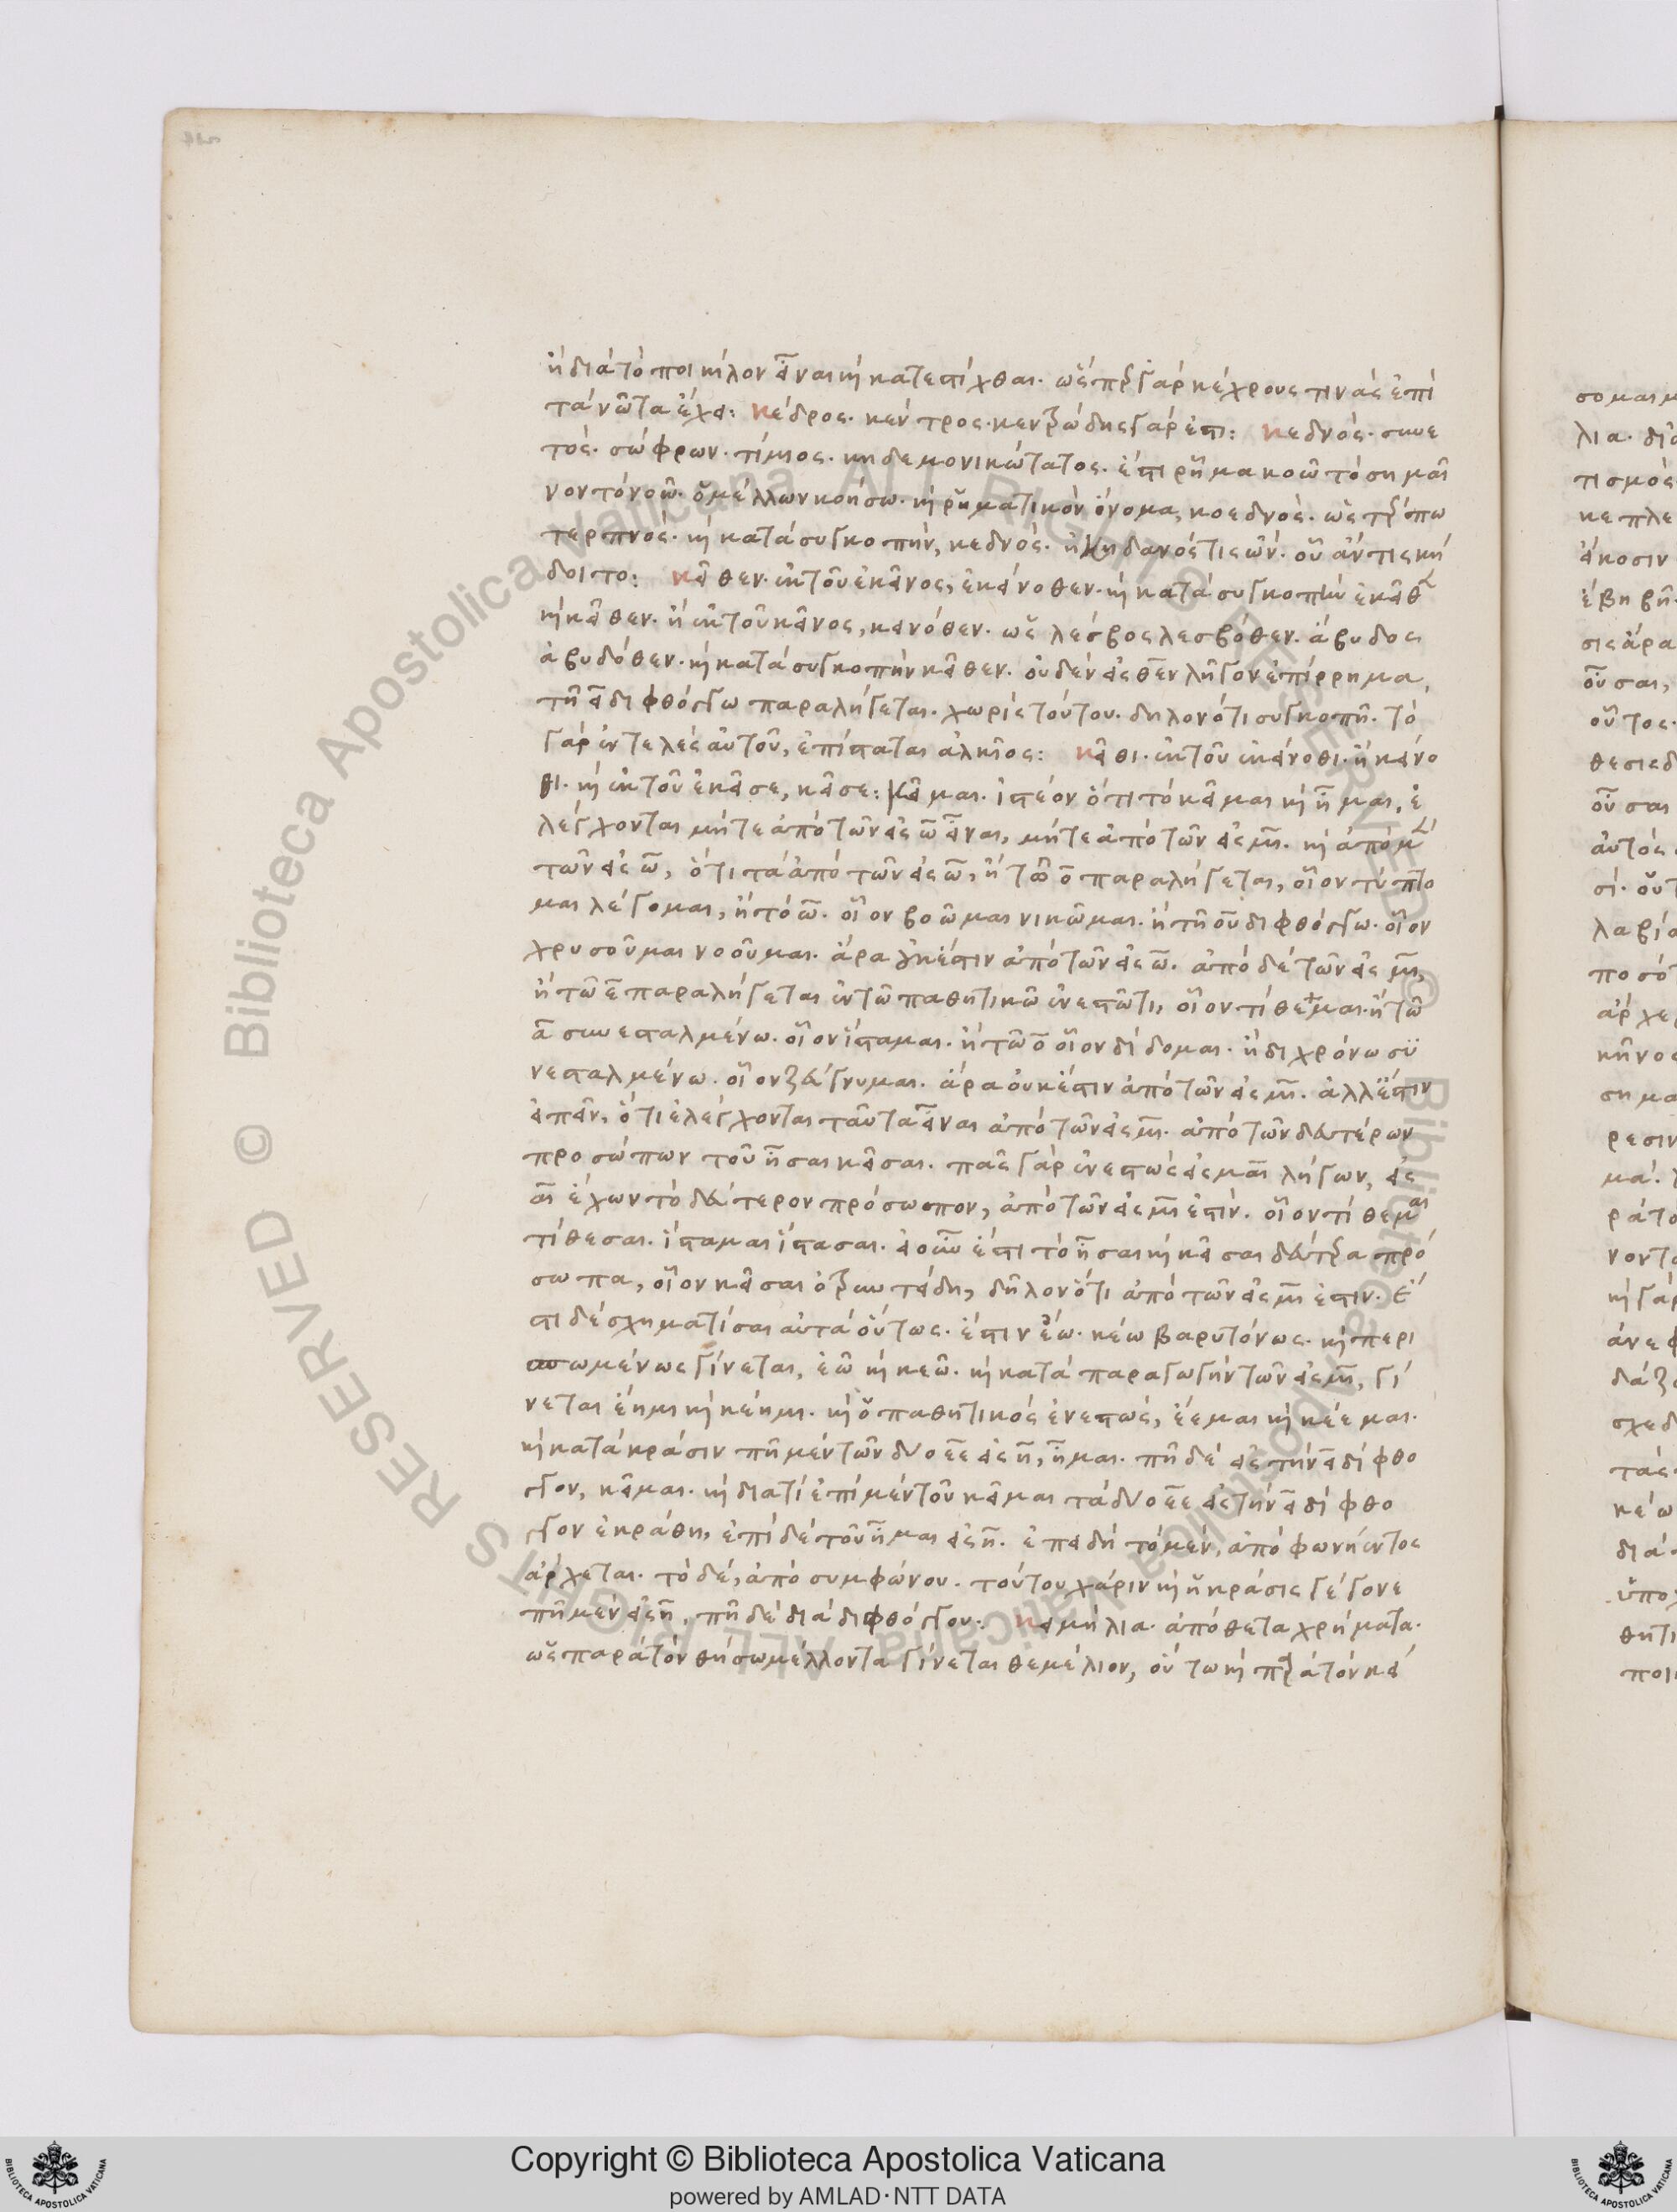 ἢ διὰ τὸ ποικίλον εἶναι καὶ κατεστίχθαι. ὥσπερ γὰρ κέχρους τινὰς ἐπὶ
τὰ νῶτα ἔχει: κέδρος. κέντρος. κεντρώδης γάρ ἐστι: κεδνός. συνε
τός. σώφρων. τίμιος. κηδεμονικώτατος. ἔστι ρῆμα κοῶ τὸ σημαῖ
νον τὸ νοῶ. ὁ μέλλων κοήσω. καὶ ρηματικὸν ὄνομα, κοεδνός. ὡς τέρπω
τερπνός. καὶ κατὰ συγκοπήν, κεδνός. ἢ κηδανός τις ὤν. οὗ ἄν τις κή
δοιτο: κεῖθεν. ἐκ τοῦ ἐκεῖνος, ἐκείνοθεν. καὶ κατὰ συγκοπὴν ἐκεῖθεν
καὶ κεῖθεν. ἢ ἐκ τοῦ κεῖνος, κεινόθεν. ὡς λέσβος λεσβόθεν. ἄβυδος
ἀβυδόθεν. καὶ κατὰ συγκοπὴν κεῖθεν. οὐδὲν εἰς θεν λῆγον ἐπίρρημα,
τῇ ει διφθόγγω παραλήγεται. χωρὶς τούτου. δηλονότι συγκοπῇ. τὸ
γὰρ ἐντελὲς αὐτοῦ, ἐπίσταται ἀλκαῖος: κεῖθι. ἐκ τοῦ ἐκείνοθι. ἢ κείνο
θι. καὶ ἐκ τοῦ ἐκεῖσε, κεῖσε: κεῖμαι. ἰστέον ὅτι τὸ κεῖμαι καὶ ἧμαι, ἐ
λέγχονται μήτε ἀπὸ τῶν εἰς ω εἶναι, μήτε ἀπὸ τῶν εἰς μι. καὶ ἀπὸ μὲν
τῶν εἰς ω, ὅτι τὰ ἀπὸ τῶν εἰς ω, ἢ τῶ ο παραλήγεται, οἷον τύπτο
μαι λέγομαι, ἢ τὸ ω. οἷον βοῶμαι νικῶμαι. ἢ τῇ ου διφθόγγω. οἷον
χρυσοῦμαι νοοῦμαι. ἄρα οὐκ ἔστιν ἀπὸ τῶν εἰς ω. ἀπὸ δὲ τῶν εἰς μι,
ἢ τῶ ε παραλήγεται ἐν τῶ παθητικῶ ἐνεστῶτι, οἷον τίθεμαι. ἢ τῶ
α συνεσταλμένω. οἷον ἵσταμαι. ἢ τῶ ο οἷον δίδομαι. ἢ διχρόνω συ
νεσταλμένω. οἷον ζεύγνυμαι. ἄρα οὐκ ἔστιν ἀπὸ τῶν εἰς μι. ἀλλ' ἔστιν
εἰπεῖν, ὅτι ἐλέγχονται ταῦτα εἶναι ἀπὸ τῶν εἰς μι. ἀπὸ τῶν δευτέρων
προσώπων τοῦ ἧσαι κεῖσαι. πᾶς γὰρ ἐνεστὼς εἰς μαι λήγων, εἰς
αι ἔχων τὸ δεύτερον πρόσωπον, ἀπὸ τῶν εἰς μι ἐστίν. οἷον τίθεμαι
τίθεσαι. ἵσταμαι ἵστασαι. εἰ οὖν ἔστι τὸ ἧσαι καὶ κεῖσαι δεύτερα πρό
σωπα, οἷον κεῖσαι ὀρσωτείδη, δῆλον ὅτι ἀπὸ τῶν εἰς μι ἐστιν. ἔ
στι δὲ σχηματίσαι αὐτὰ οὕτως. ἔστιν ἕω. κέω βαρυτόνως. καὶ περι
σπωμένως γίνεται, ἑῶ καὶ κεῶ. καὶ κατὰ παραγωγὴν τῶν εἰς μι, γί
νεται ἕημι καὶ κέημι. καὶ ὁ παθητικὸς ἐνεστώς, ἕεμαι καὶ κέεμαι.
καὶ κατὰ κράσιν πῆ μὲν τῶν δύο εε εἰς η, ἧμαι. πῆ δὲ εἰς τὴν ει δίφθο
γγον, κεῖμαι. καὶ διατί ἐπὶ μὲν τοῦ κεῖμαι τὰ δύο εε εἰς τὴν ει δίφθο
γγον ἐκράθη, ἐπὶ δὲ τοῦ ἧμαι εἰς η. ἐπειδὴ τὸ μέν, ἀπὸ φωνήεντος
ἄρχεται. τὸ δέ, ἀπὸ συμφώνου. τούτου χάριν καὶ ἡ κράσις γέγονε
πῆ μὲν εἰς η, πῆ δὲ διὰ διφθόγγου: κειμήλια. ἀπόθετα χρήματα.
ὡς παρὰ τὸν θήσω μέλλοντα γίνεται θεμέλιον, οὕτω καὶ παρὰ τὸν κεί